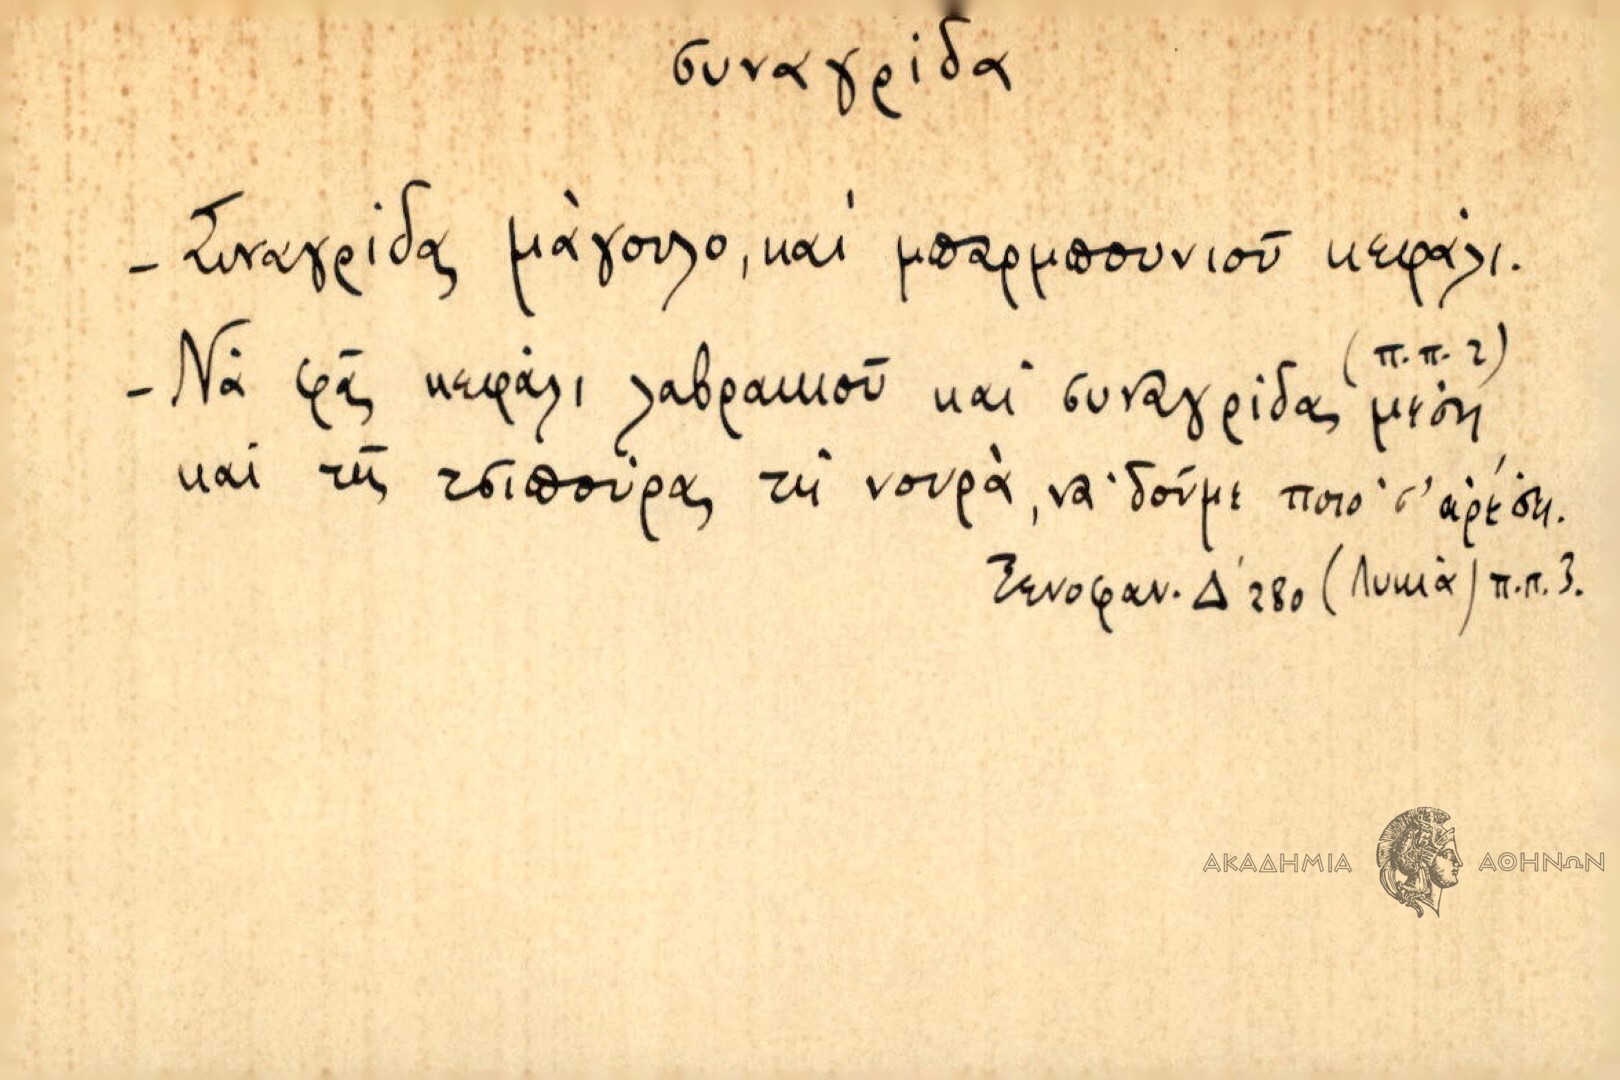 συναγρίδα
– Συναγρίδας μάγουλο, καὶ μπαρμπουνιοῦ κεφάλι.
– Νὰ φᾶς κεφάλι λαβρακιοῦ καὶ συναγρίδας (π.π. 2) μέση
καὶ τῆς τσιπούρας τὴ νουρά, νὰ δοῦμε ποιὸ σ' ἀρέσῃ.
Ξενοφαν. Δ' 280 (Λυκιά) π.π. 3.
ΑΚΑΔΗΜΙΑ ΑΘΗΝΩΝ